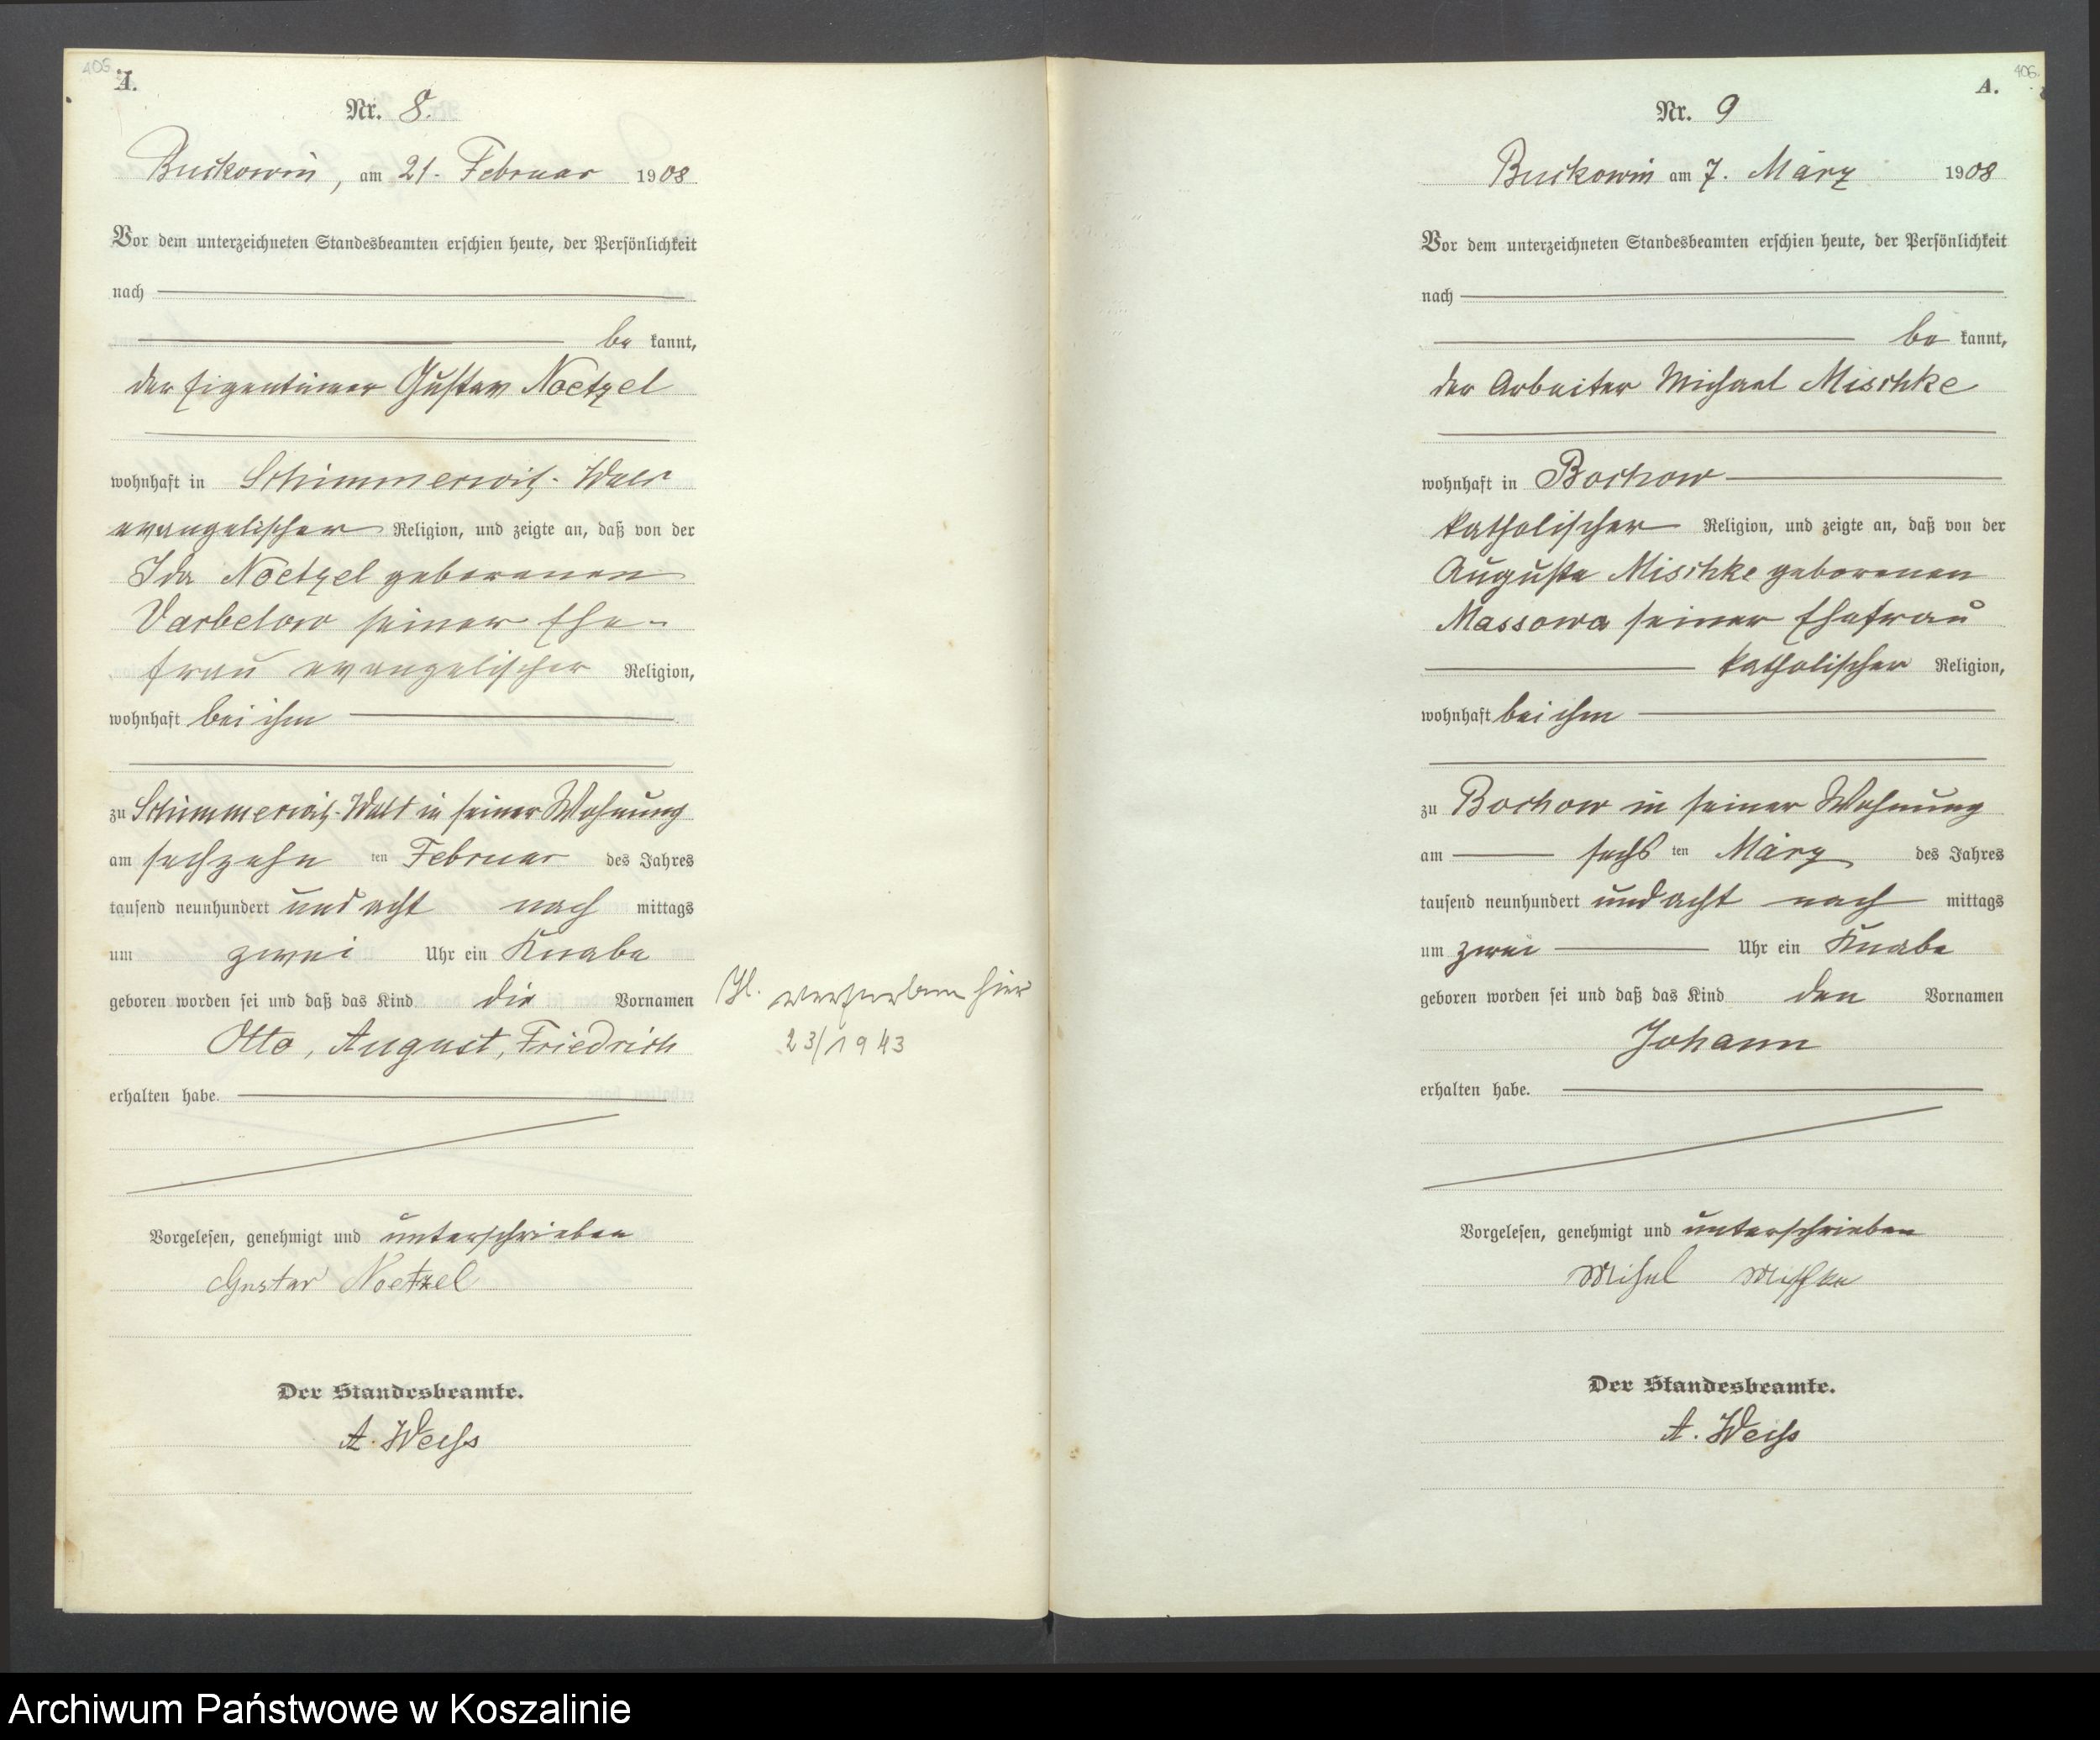 405
A.
Nr. 8.
Buckowin, am 21. Februar 1908
Vor dem unterzeichneten Standesbeamten erschien heute, der Persönlichkeit
nach
be kannt,
der Eigentümer Gustav Noetzel
wohnhaft in Schimmerwitz-Wald
evangelischer Religion, und zeigte an, daß von der
Ida Noetzel geborenen
Varbelow seiner Ehe-
frau evangelischer Religion,
wohnhaft bei ihm
zu Schimmerwitz-Wald in seiner Wohnung
am sechzehn ten Februar des Jahres
tausend neunhundert und acht nach mittags
um zwei Uhr ein Knabe
geboren worden sei und daß das Kind die Vornamen
Otto, August, Friedrich
erhalten habe.
verstorben hier
23/1943
Vorgelesen, genehmigt und unterschrieben
Gustav Noetzel
Der Standesbeamte.
A. Weiss
406
A.
Nr. 9
Buckowin am 7. März 1908
Vor dem unterzeichneten Standesbeamten erschien heute, der Persönlichkeit
nach
be kannt,
der Arbeiter Michael Mischke
wohnhaft in Bochow
katholischer Religion, und zeigte an, daß von der
Auguste Mischke geborenen
Massowa seiner Ehefrau
katholischer Religion,
wohnhaft bei ihm
zu Bochow in seiner Wohnung
am sechs ten März des Jahres
tausend neunhundert und acht nach mittags
um zwei Uhr ein Knabe
geboren worden sei und daß das Kind den Vornamen
Johann
erhalten habe.
Vorgelesen, genehmigt und unterschrieben
Mihal Mischke
Der Standesbeamte.
A. Weiss
Archiwum Państwowe w Koszalinie